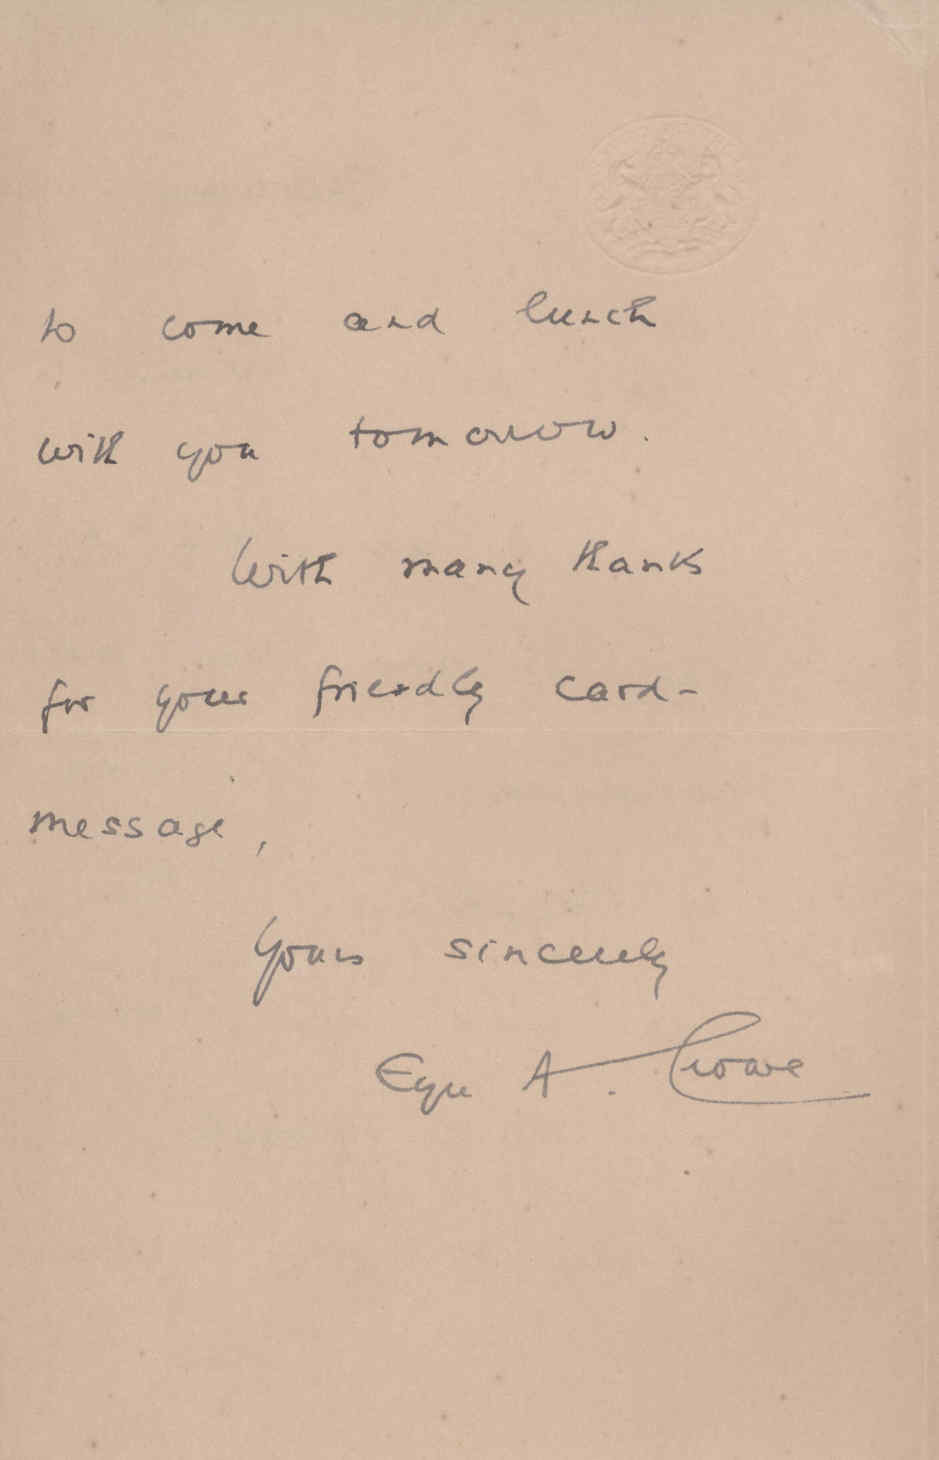 to come and lunch
with you tomorrow.
With many thanks
for your friendly card-
message,
Yours sincerely
Eyre A. Crowe